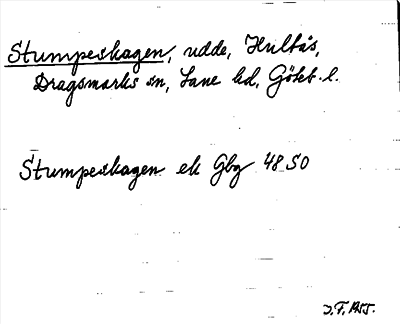 Stumpeskagen, udde, Hultås,
Dragsmarks sn, Lane hd, Göteb. l.
Stumpeskagen ek Gbg 48 SO
J.F. 1955.